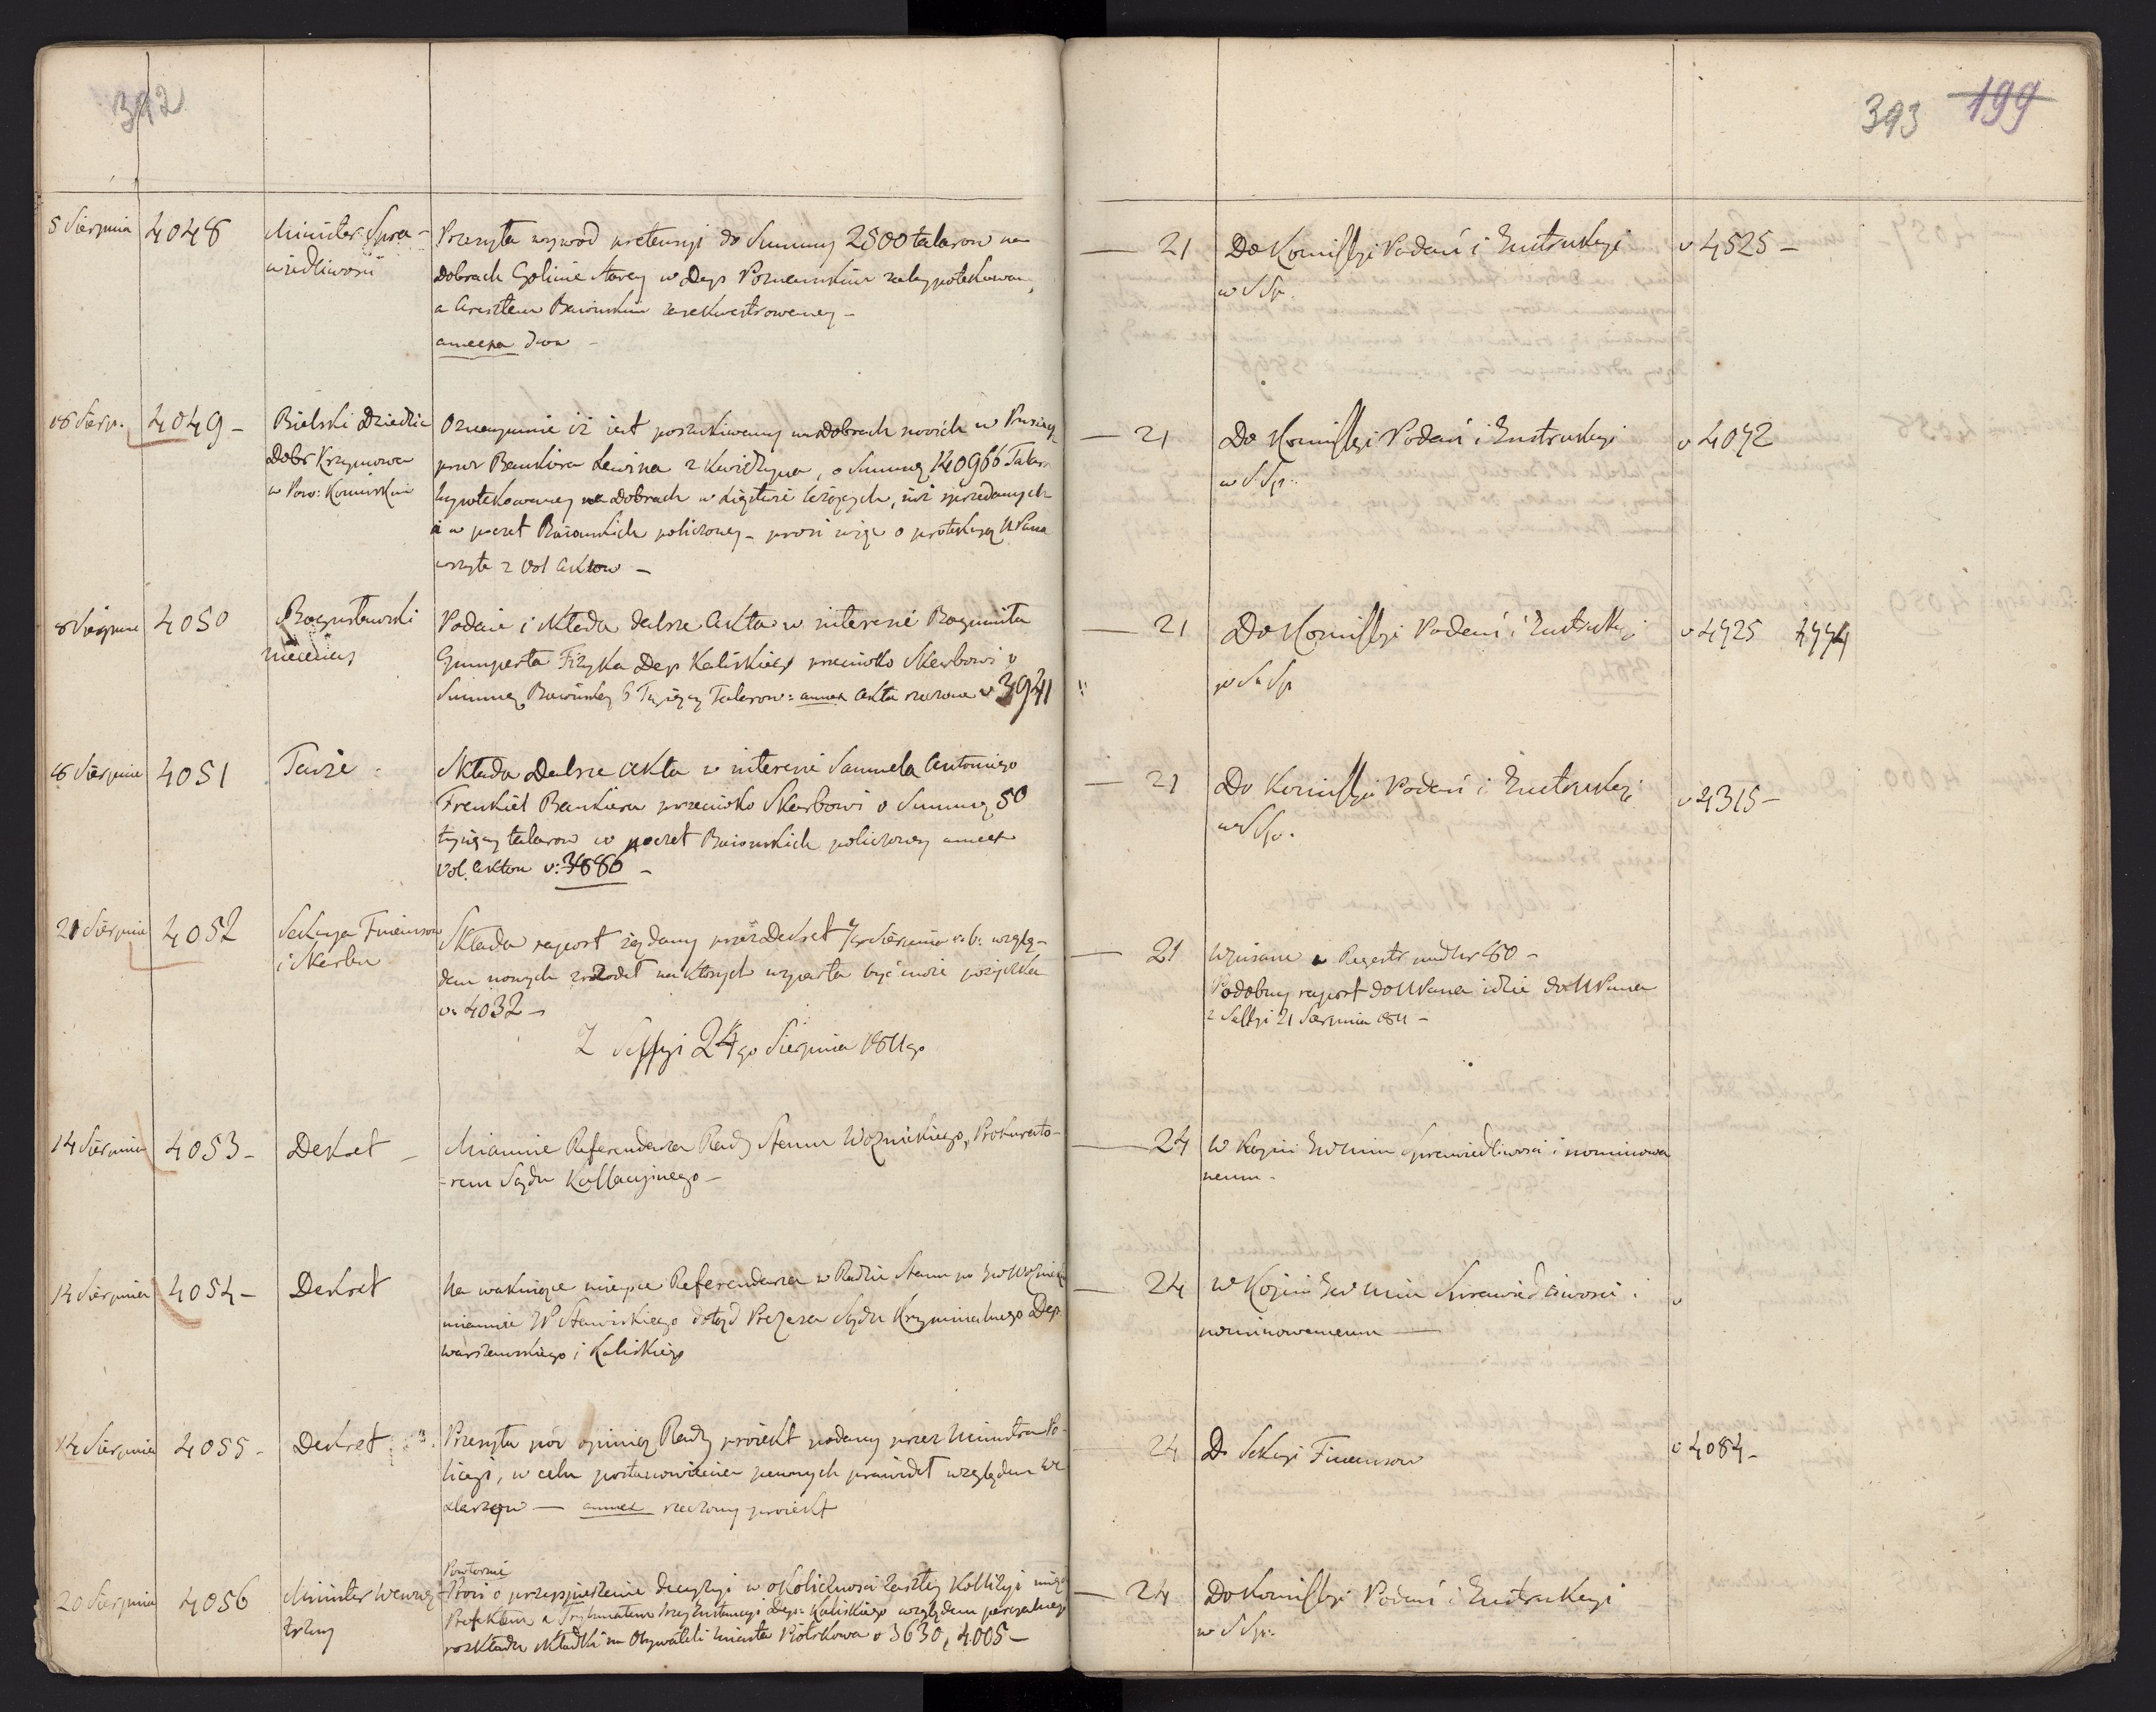 392
393 199
5 Sierpnia 4048 Minister Spra-
wiedliwości
Przesyła wywod pretensyi do Summy 2500 talarow na
Dobrach Golinie Starey w Dep Poznańskim zahypotekowan,
a Aresztem Baiońskim zasekwestrowaney -
annexa dwa -
— 21 Do Kommissyi Podań i Instrukcyi v 4525 -
w S Sp.
18 Sierp. 4049 - Bielski Dziedzic
Dobr Krzymowa
w Pow: Konińskim
Oznaymuie iż iest poszukiwany na Dobrach swoich w Prusiech
przez Bankiera Lewina z Kwidzyna, o Summę 140966 Talar
hypotekowaney na Dobrach w Xięstwie leżących, iuż sprzedanych
i w poczet Baiońskich policzoney - prosi więc o protekcyą NPana
wszyte 2 vol Aktow -
— 21 Do Kommissyi Podań i Instrukcyi v 4072
w S Sp.
8 Sierpnia 4050 Bogusławski
mecenas
Podaie i składa dalsze Akta w interesie Zygmunta
Gumperta Fizyka Dep Kaliskiego przeciwko Skarbowi o
Summę Baiońską 6 Tysięcy Talarow: annex Akta rzeczone v 3941
— 21 Do Kommissyi Podań i Instrukcyi v 4425 4474
w S Sp
18 Sierpnia 4051 Tenże -
Składa Dalsze Akta w interesie Samuela Antoniego
Frenkiel Bankiera przeciwko Skarbowi o Summę 50
tysięcy talarow w poczet Baiońskich policzoney annex
vol. Aktow v: 3686 -
— 21 Do Kommissyi Podań i Instrukcyi v 4315 -
w S Sp.
21 Sierpnia 4052 Sekcya Finansow
i Skarbu
Składa raport żądany przez Dekret 7go Sierpnia r. b: wzglę-
dem nowych zrzodeł na ktorych wyparta być może pożyczka
v: 4032 -
— 21 Wpisane w Regestr nad Nr 60 -
Podobny raport do NPana idzie do NPana
z Sessyi 21 Sierpnia 1811 -
Z Sessyi 24go Sierpnia 1811go
14 Sierpnia 4053 - Dekret -
Mianuie Referendarza Rady Stanu Woźnickiego, Prokurato-
=rem Sądu Kassacyjnego -
— 24 W Kopii JW Min Sprawiedliwości i nominowa
nemu -
14 Sierpnia 4054 - Dekret
Na wakuiące mieysce Referendarza w Radzie Stanu po JW Woźnickim
mianuie JP Stawiskiego dotąd Prezesa Sądu Kryminalnego Dep
Warszawskiego i Kaliskiego
— 24 w Kopii JW Min Sprawiedliwości i v
nominowanemu —
14 Sierpnia 4055 - Dekret
Przesyła pod opinią Rady proiekt podany przez Ministra Po-
licyi, w celu postanowienia pewnych prawideł względem We
xlarzow — annex rzeczony proiekt
24 Do Sekcyi Finansow v 4084 -
20 Sierpnia 4056 Minister Wewnę-
trzny
Powtornie
Prosi o przyspieszenie decyzyi w okoliczności zaszłey Kollizyi międz
Prefektem, a Trybunałem 1szey Instancyi Dep: Kaliskiego względem
rozkładu składki na Obywateli Miasta Piotrkowa v 3630, 4005 -
— 24 Do Kommissyi Podań i Instrukcyi
w S Sp.